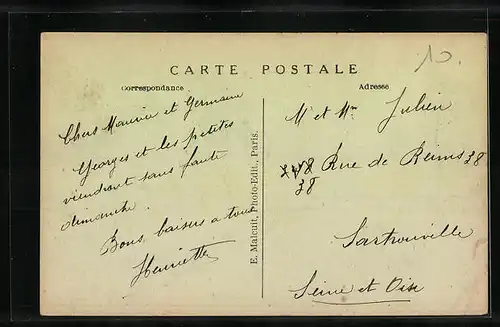 10.
CARTE POSTALE
Correspondance
Adresse
Chers Maurice et Germaine
Georges et les petites
viendront sans faute
dimanche.
Bons baisers a tous
Henriette
E. Malcuit, Photo-Edit., Paris.
M et Mme Julien
38 Rue de Reims 38
Sartrouville
Seine et Oise